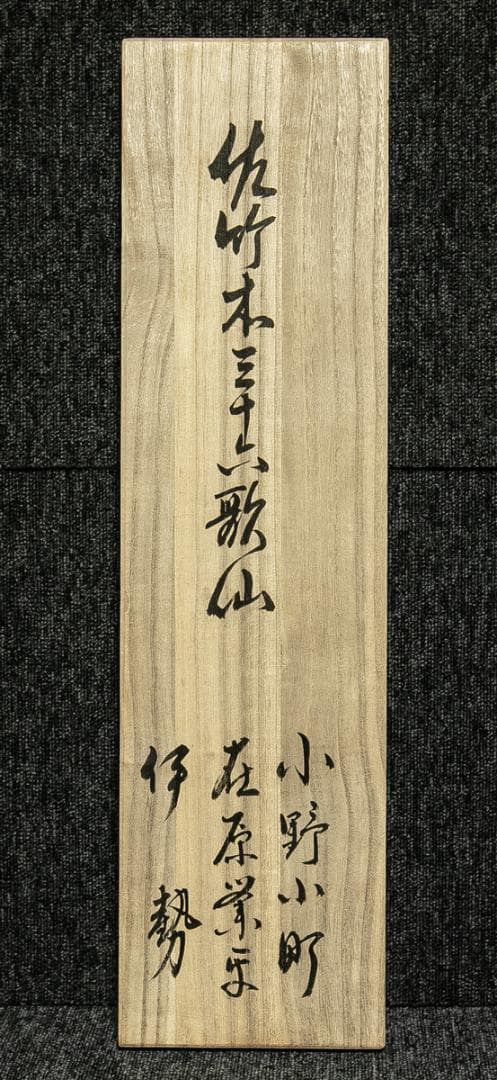 佐竹本三十六歌仙
小野小町
在原業平
伊勢